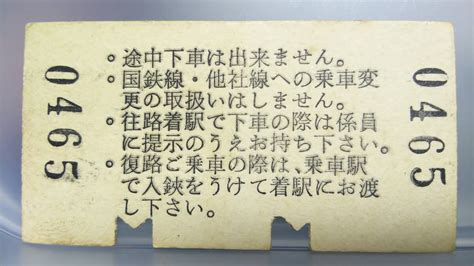 0465
。途中下車は出来ません。
。国鉄線・他社線への乗車変
更の取扱いはしません。
。往路着駅で下車の際は係員
に提示のうえお持ち下さい。
。復路ご乗車の際は、乗車駅
で入鋏をうけて着駅にお渡
し下さい。
0465